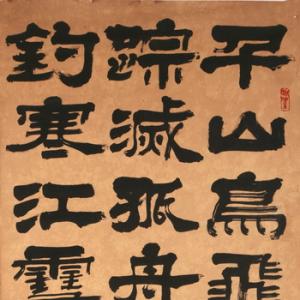 千山鳥飛
踪滅孤舟
釣寒江雪